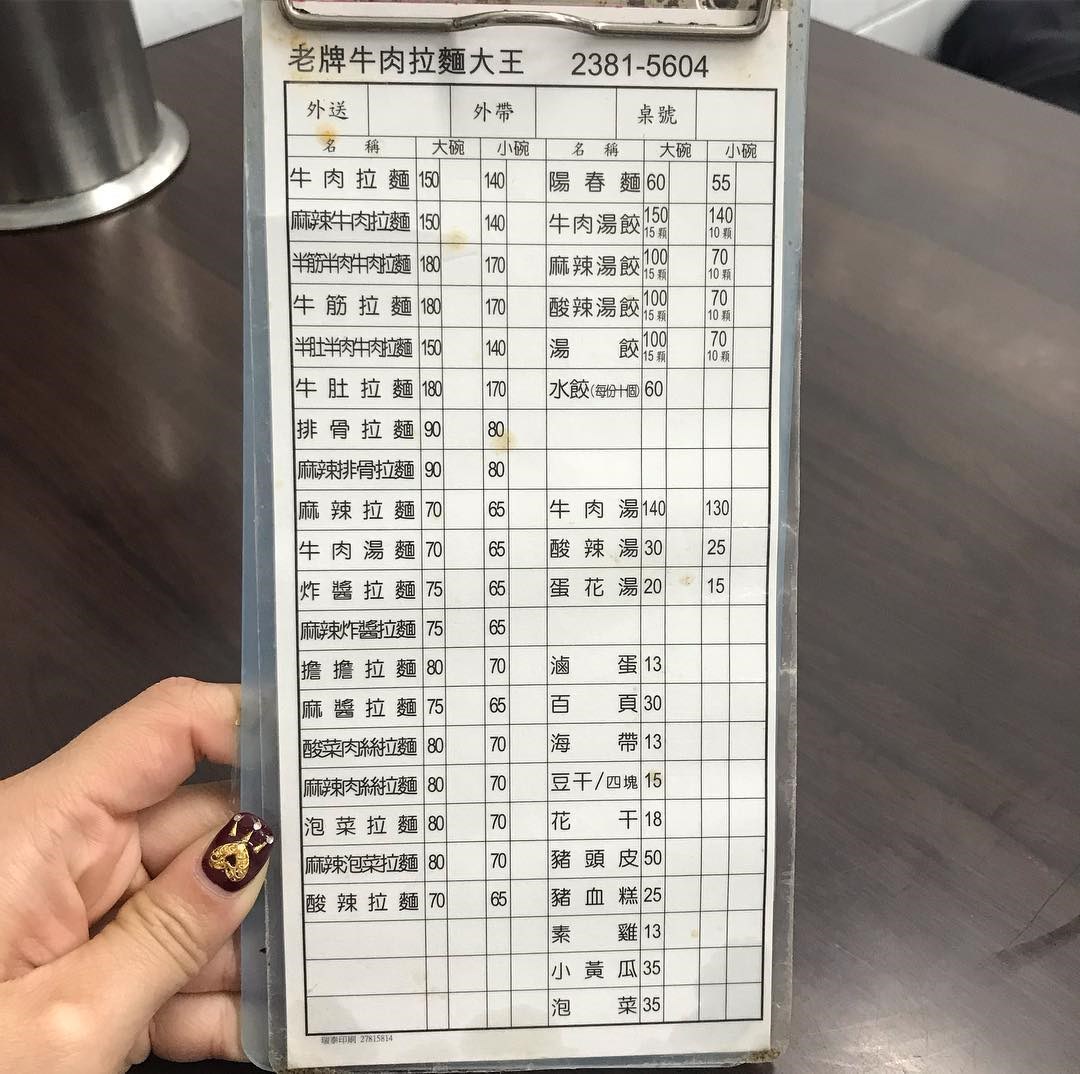 老牌牛肉拉麵大王 2381-5604
外送 外帶 桌號
名稱 大碗 小碗 名稱 大碗 小碗
牛肉拉麵 150 140 陽春麵 60 55
麻辣牛肉拉麵 150 140 牛肉湯餃 150 15顆 140 10顆
半筋半肉牛肉拉麵 180 170 麻辣湯餃 100 15顆 70 10顆
牛筋拉麵 180 170 酸辣湯餃 100 15顆 70 10顆
半肚半肉牛肉拉麵 150 140 湯餃 100 15顆 70 10顆
牛肚拉麵 180 170 水餃(每份十個) 60
排骨拉麵 90 80
麻辣排骨拉麵 90 80
麻辣拉麵 70 65 牛肉湯 140 130
牛肉湯麵 70 65 酸辣湯 30 25
炸醬拉麵 75 65 蛋花湯 20 15
麻辣炸醬拉麵 75 65
擔擔拉麵 80 70 滷蛋 13
麻醬拉麵 75 65 百頁 30
酸菜肉絲拉麵 80 70 海帶 13
麻辣肉絲拉麵 80 70 豆干/四塊 15
泡菜拉麵 80 70 花干 18
麻辣泡菜拉麵 80 70 豬頭皮 50
酸辣拉麵 70 65 豬血糕 25
素雞 13
小黃瓜 35
泡菜 35
瑞泰印刷 27815814